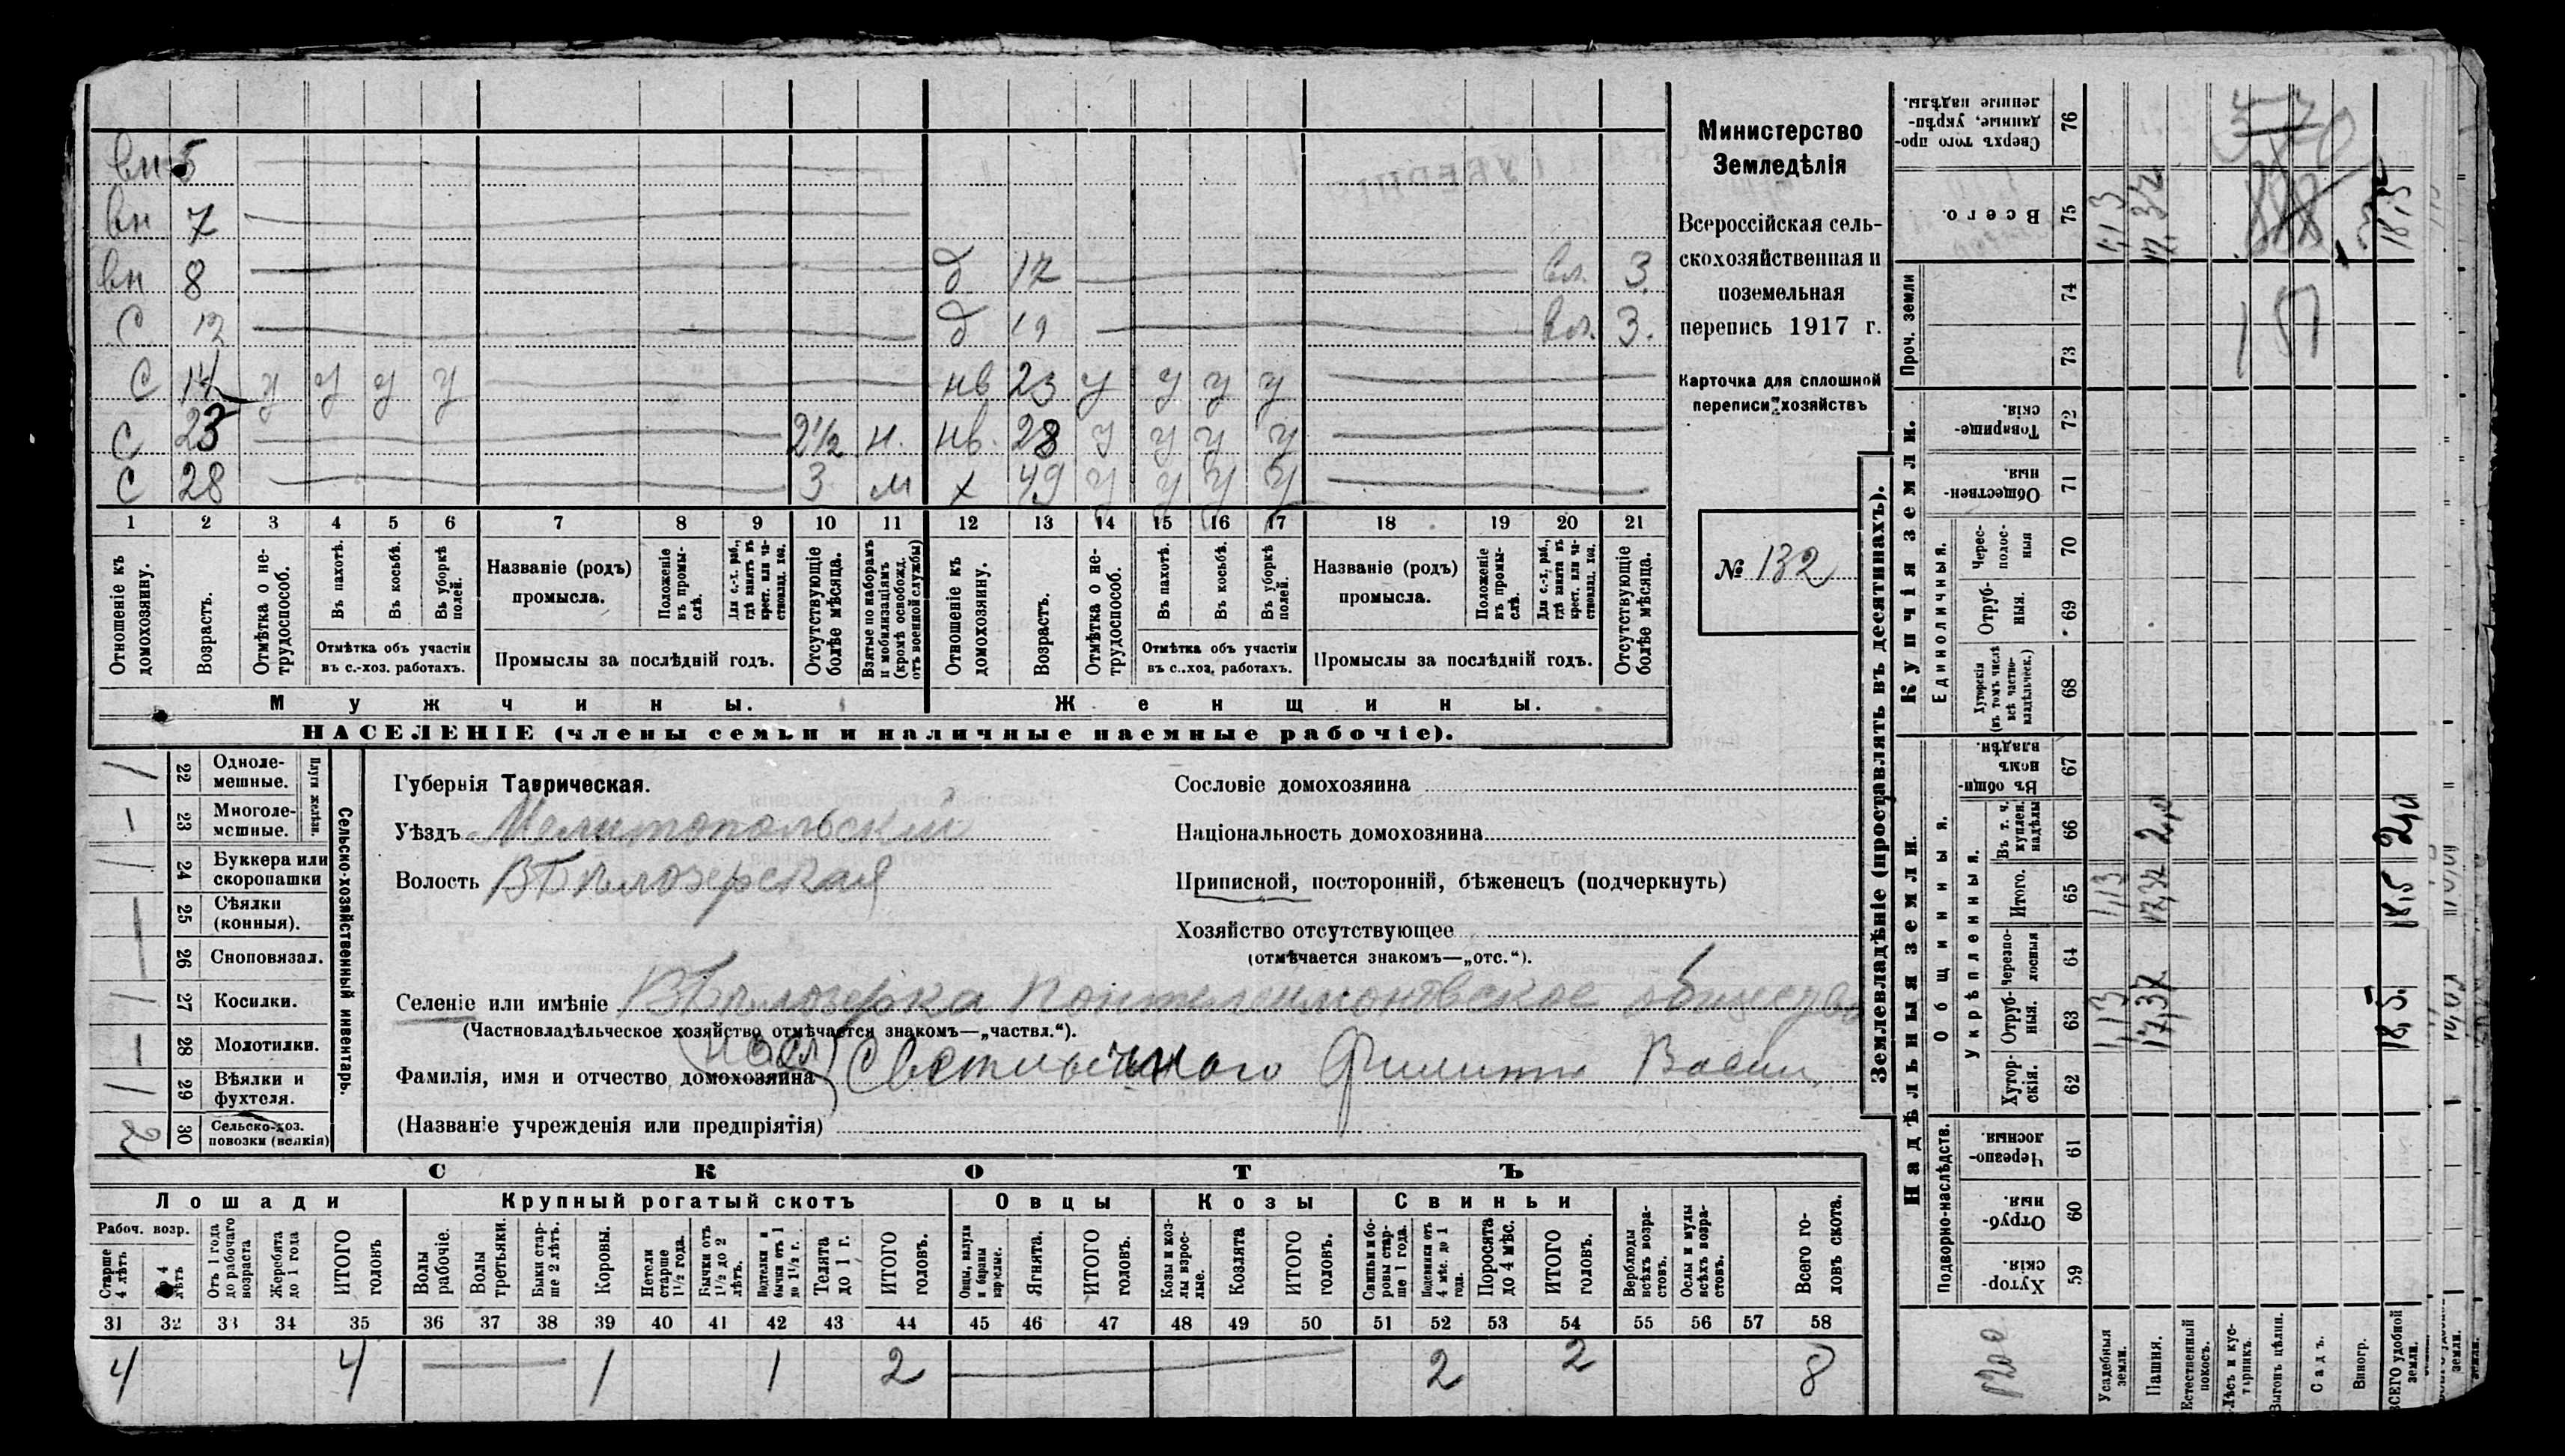 вн 5
вн 7
вн 8 д 12 вл. 3
С 12 д 19 вл. 3.
С 14 у у у у нв 23 у у у у
С 23 2½ н. нв. 28 у у у у
С 28 3 м х 49 у у у у
1 2 3 4 5 6 7 8 9 10 11 12 13 14 15 16 17 18 19 20 21
Отношеніе къ домохозяину.
Возрастъ.
Отмѣтка о нетрудоспособ.
Въ пахотѣ.
Въ косьбѣ.
Въ уборкѣ полей.
Отмѣтка объ участіи въ с.-хоз. работахъ.
Названіе (родъ) промысла.
Положеніе въ промыслѣ.
Для с.-х. раб., гдѣ занятъ въ крест. или частновлад. хоз.
Промыслы за послѣдній годъ.
Отсутствующіе болѣе мѣсяца.
Взятые по наборамъ и мобилизаціямъ (кромѣ освобожд. отъ военной службы)
Отношеніе къ домохозяину.
Возрастъ.
Отмѣтка о нетрудоспособ.
Въ пахотѣ.
Въ косьбѣ.
Въ уборкѣ полей.
Отмѣтка объ участіи въ с..хоз. работахъ.
Названіе (родъ) промысла.
Положеніе въ промыслѣ.
Для с.-х. раб., гдѣ занята въ крест. или частновлад. хоз.
Промыслы за послѣдній годъ.
Отсутствующіе болѣе мѣсяца.
Мужчины. Женщины.
НАСЕЛЕНІЕ (члены семьи и наличные наемные рабочіе).
Министерство
Земледѣлія
Всероссійская сель-
скохозяйственная и
поземельная
перепись 1917 г.
Карточка для сплошной
переписи хозяйствъ
№ 132
22 Однолемешные.
23 Многолемешные.
Плуги желѣзн.
24 Буккера или скоропашки
25 Сѣялки (конныя).
26 Сноповязал.
27 Косилки.
28 Молотилки.
29 Вѣялки и фухтеля.
30 Сельско-хоз. повозки (всякія)
Сельско-хозяйственный инвентарь.
Губернія Таврическая.
Уѣздъ Мелитопольскій
Волость ВБѣлозерская
Селеніе или имѣніе ВБѣлозерка
(Частновладѣльческое хозяйство отмѣчается знакомъ—„частвл.“).
Фамилія, имя и отчество домохозяина Филипп Васил.
(Названіе учрежденія или предпріятія)
Сословіе домохозяина
Національность домохозяина
Приписной, посторонній, бѣженецъ (подчеркнуть)
Хозяйство отсутствующее
(отмѣчается знакомъ—„отс.“).
СКОТЪ
Лошади Крупный рогатый скотъ Овцы Козы Свиньи
Рабоч. возр.
Старше 4 лѣтъ
До 4 лѣтъ
Отъ 1 года до рабочаго возраста
Жеребята до 1 года
ИТОГО головъ
Волы рабочіе.
Волы третьяки.
Быки старше 2 лѣтъ.
Коровы.
Нетели старше 1½ года.
Бычки отъ 1½ до 2 лѣтъ.
Подтелки и бычки отъ 1 до 1½ г.
Телята до 1 г.
ИТОГО головъ.
Овцы, валухи и бараны взрослые.
Ягнята.
ИТОГО головъ.
Козы и козлы взрослые.
Козлята
ИТОГО головъ.
Свиньи и боровы старше 1 года.
Подсвинки отъ 4 мѣс. до 1 года.
Поросята до 4 мѣс.
ИТОГО головъ.
Верблюды всѣхъ возрастовъ.
Ослы и мулы всѣхъ возрастовъ.
Всего головъ скота.
31 32 33 34 35 36 37 38 39 40 41 42 43 44 45 46 47 48 49 50 51 52 53 54 55 56 57 58
4 4 1 1 2 2 2 8
Землевладѣніе (проставлять въ десятинахъ).
Купчія земли.
Надѣльныя земли.
Сверхъ того проданные, укрѣпленные надѣлы. 76
Всего. 75 1,13 17,32
Проч. земли 74 73
Товарищескія. 72
Общественныя. 71
Единоличныя.
Чересполосныя 70
Отрубныя. 69
Хуторскія (въ томъ числѣ всѣ частновладѣльческ.) 68
Общинныя.
Въ общинномъ владѣн. 67
Укрѣпленныя.
Въ т. ч. куплен. надѣлы 66 2,0 2,0
Итого. 65 1,13 17,32 18,5
Черезполосныя 64
Отрубныя. 63 1,13 17,37 18,5
Хуторскія. 62
Подворно-наслѣдств.
Черезполосныя. 61
Отрубныя. 60
Хуторскія. 59
Усадебныя земли.
Пашня.
Естественный покосъ.
Лѣсъ и кустарникъ.
Выгонъ цѣлин.
Садъ.
Виногр.
ВСЕГО удобной земли.